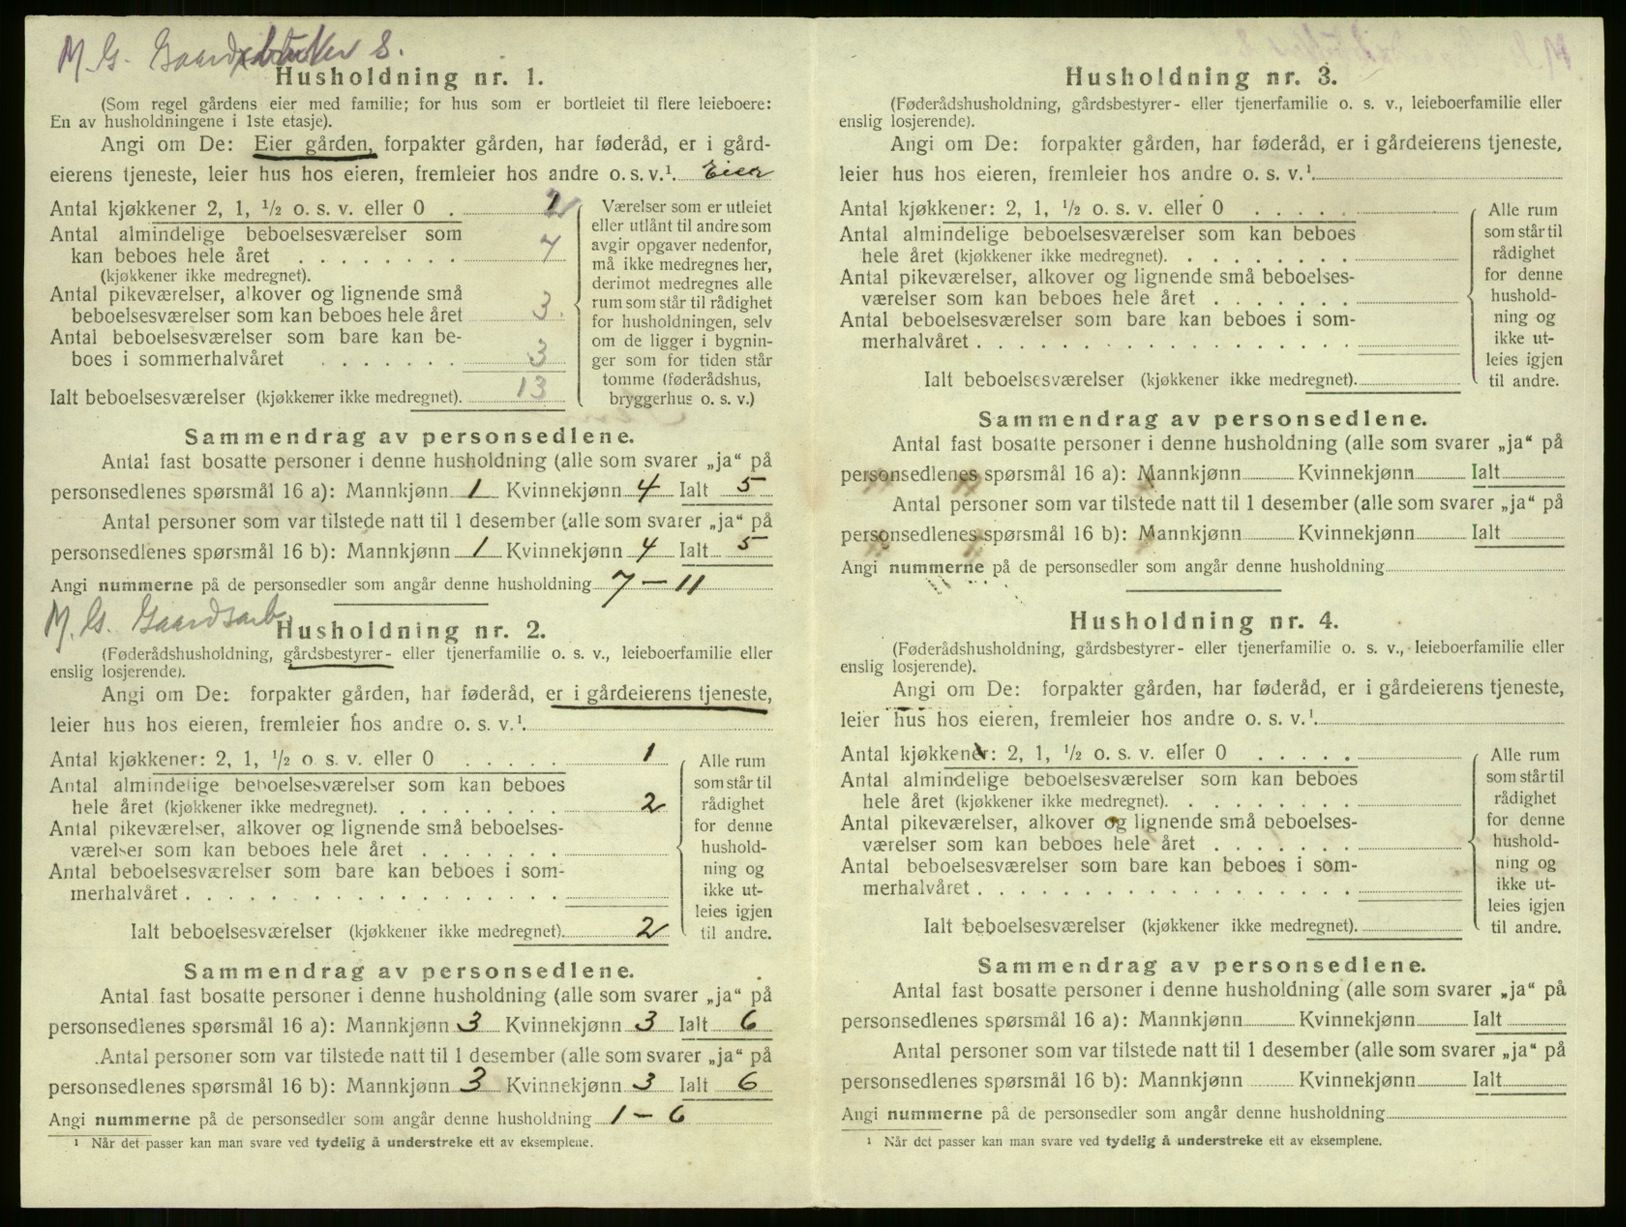 M. G. Gaardbruker S.
Husholdning nr. 1.
(Som regel gårdens eier med familie; for hus som er bortleiet til flere leieboere:
En av husholdningene i 1ste etasje).
Angi om De: Eier gården, forpakter gården, har føderåd, er i gård-
eierens tjeneste, leier hus hos eieren, fremleier hos andre o. s. v.¹. Eier
Antal kjøkkener 2, 1, ½ o. s. v. eller 0 .
Antal almindelige beboelsesværelser som
kan beboes hele året . . . . . . . . 7
(kjøkkener ikke medregnet).
Antal pikeværelser, alkover og lignende små
beboelsesværelser som kan beboes hele året 3.
Antal beboelsesværelser som bare kan be-
boes i sommerhalvåret . . . . . . . 3
Ialt beboelsesværelser (kjøkkener ikke medregnet). 13
Værelser som er utleiet
eller utlånt til andre som
avgir opgaver nedenfor,
må ikke medregnes her,
derimot medregnes alle
rum som står til rådighet
for husholdningen, selv
om de ligger i bygnin-
ger som for tiden står
tomme (føderådshus,
bryggerhus o. s. v.)
Sammendrag av personsedlene.
Antal fast bosatte personer i denne husholdning (alle som svarer „ja“ på
personsedlenes spørsmål 16 a): Mannkjønn 1 Kvinnekjønn 4 Ialt 5
Antal personer som var tilstede natt til 1 desember (alle som svarer „ja“ på
personsedlenes spørsmål 16 b): Mannkjønn 1 Kvinnekjønn 4 Ialt 5
Angi nummerne på de personsedler som angår denne husholdning 7 — 11
M. G. Gaardsarb.
Husholdning nr. 2.
(Føderådshusholdning, gårdsbestyrer- eller tjenerfamilie o. s. v., leieboerfamilie eller
enslig losjerende).
Angi om De: forpakter gården, har føderåd, er i gårdeierens tjeneste,
leier hus hos eieren, fremleier hos andre o. s. v.¹.
Antal kjøkkener: 2, 1, ½ o. s. v. eller 0 . . . . . 1
Antal almindelige beboelsesværelser som kan beboes
hele året (kjøkkener ikke medregnet). . . . . . . . 2
Antal pikeværelser, alkover og lignende små beboelses-
værelser som kan beboes hele året . . . . . . .
Antal beboelsesværelser som bare kan beboes i som-
merhalvåret . . . . . . . . . . . . . . . . . .
Ialt beboelsesværelser (kjøkkener ikke medregnet). 2
Alle rum
som står til
rådighet
for denne
hushold-
ning og
ikke ut-
leies igjen
til andre.
Sammendrag av personsedlene.
Antal fast bosatte personer i denne husholdning (alle som svarer „ja“ på
personsedlenes spørsmål 16 a): Mannkjønn 3 Kvinnekjønn 3 Ialt 6
Antal personer som var tilstede natt til 1 desember (alle som svarer „ja“ på
personsedlenes spørsmål 16 b): Mannkjønn 3 Kvinnekjønn 3 Ialt 6
Angi nummerne på de personsedler som angår denne husholdning 1 — 6
¹ Når det passer kan man svare ved tydelig å understreke ett av eksemplene.
Husholdning nr. 3.
(Føderådshusholdning, gårdsbestyrer- eller tjenerfamilie o. s. v., leieboerfamilie eller
enslig losjerende).
Angi om De: forpakter gården, har føderåd, er i gårdeierens tjeneste,
leier hus hos eieren, fremleier hos andre o. s. v.¹.
Antal kjøkkener: 2, 1, ½ o. s. v. eller 0 . . . . .
Antal almindelige beboelsesværelser som kan beboes
hele året (kjøkkener ikke medregnet). . . . . . . .
Antal pikeværelser, alkover og lignende små beboelses-
værelser som kan beboes hele året . . . . . . .
Antal beboelsesværelser som bare kan beboes i som-
merhalvåret . . . . . . . . . . . . . . . . . .
Ialt beboelsesværelser (kjøkkener ikke medregnet).
Alle rum
som står til
rådighet
for denne
hushold-
ning og
ikke ut-
leies igjen
til andre.
Sammendrag av personsedlene.
Antal fast bosatte personer i denne husholdning (alle som svarer „ja“ på
personsedlenes spørsmål 16 a): Mannkjønn Kvinnekjønn Ialt
Antal personer som var tilstede natt til 1 desember (alle som svarer „ja“ på
personsedlenes spørsmål 16 b): Mannkjønn Kvinnekjønn Ialt
Angi nummerne på de personsedler som angår denne husholdning
Husholdning nr. 4.
(Føderådshusholdning, gårdsbestyrer- eller tjenerfamilie o. s. v., leieboerfamilie eller
enslig losjerende).
Angi om De: forpakter gården, har føderåd, er i gårdeierens tjeneste,
leier hus hos eieren, fremleier hos andre o. s. v.¹.
Antal kjøkkener: 2, 1, ½ o. s. v. eller 0 . . . . .
Antal almindelige beboelsesværelser som kan beboes
hele året (kjøkkener ikke medregnet). . . . . . . .
Antal pikeværelser, alkover og lignende små beboelses-
værelser som kan beboes hele året . . . . . . .
Antal beboelsesværelser som bare kan beboes i som-
merhalvåret . . . . . . . . . . . . . . . . . .
Ialt beboelsesværelser (kjøkkener ikke medregnet).
Alle rum
som står til
rådighet
for denne
hushold-
ning og
ikke ut-
leies igjen
til andre.
Sammendrag av personsedlene.
Antal fast bosatte personer i denne husholdning (alle som svarer „ja“ på
personsedlenes spørsmål 16 a): Mannkjønn Kvinnekjønn Ialt
Antal personer som var tilstede natt til 1 desember (alle som svarer „ja“ på
personsedlenes spørsmål 16 b): Mannkjønn Kvinnekjønn Ialt
Angi nummerne på de personsedler som angår denne husholdning
¹ Når det passer kan man svare ved tydelig å understreke ett av eksemplene.